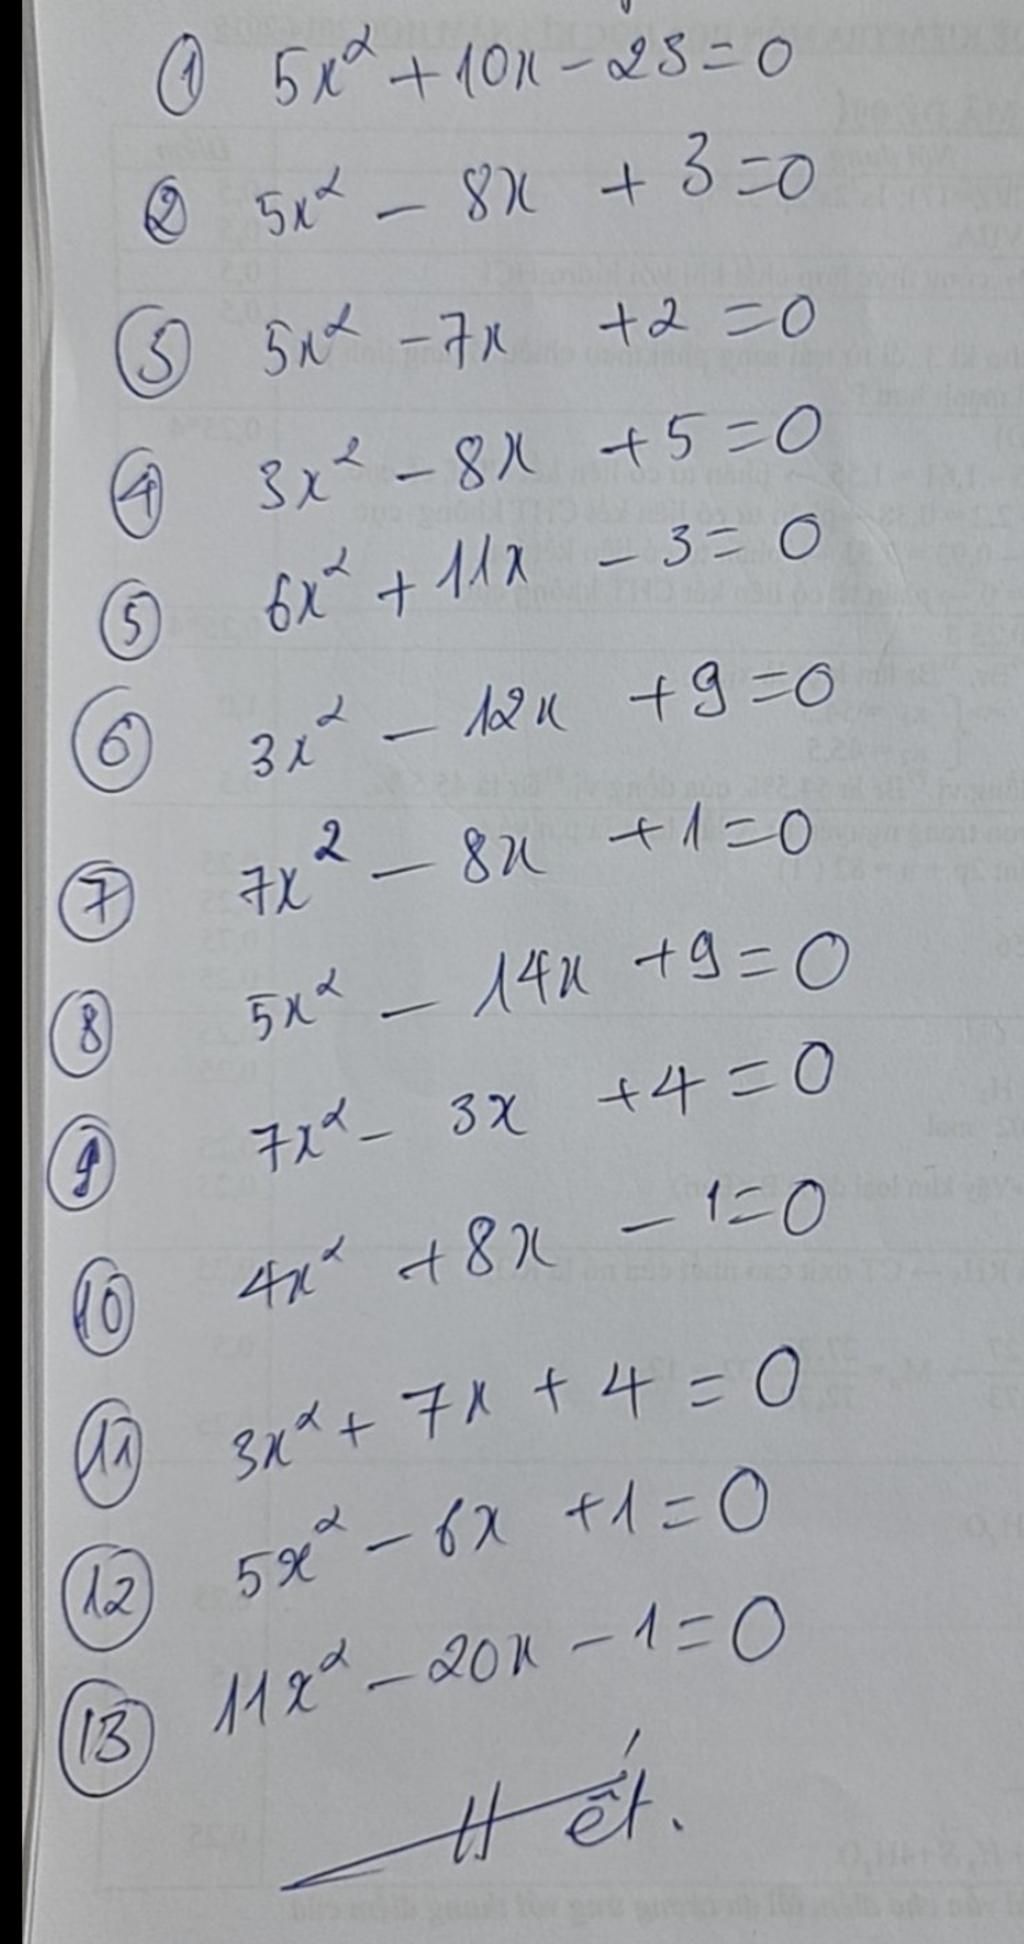 ① 5x² + 10x - 23 = 0
② 5x² - 8x + 3 = 0
③ 5x² - 7x + 2 = 0
④ 3x² - 8x + 5 = 0
⑤ 6x² + 11x - 3 = 0
⑥ 3x² - 12x + 9 = 0
⑦ 7x² - 8x + 1 = 0
⑧ 5x² - 14x + 9 = 0
⑨ 7x² - 3x + 4 = 0
⑩ 4x² + 8x - 1 = 0
⑪ 3x² + 7x + 4 = 0
⑫ 5x² - 6x + 1 = 0
⑬ 11x² - 20x - 1 = 0
Hết.